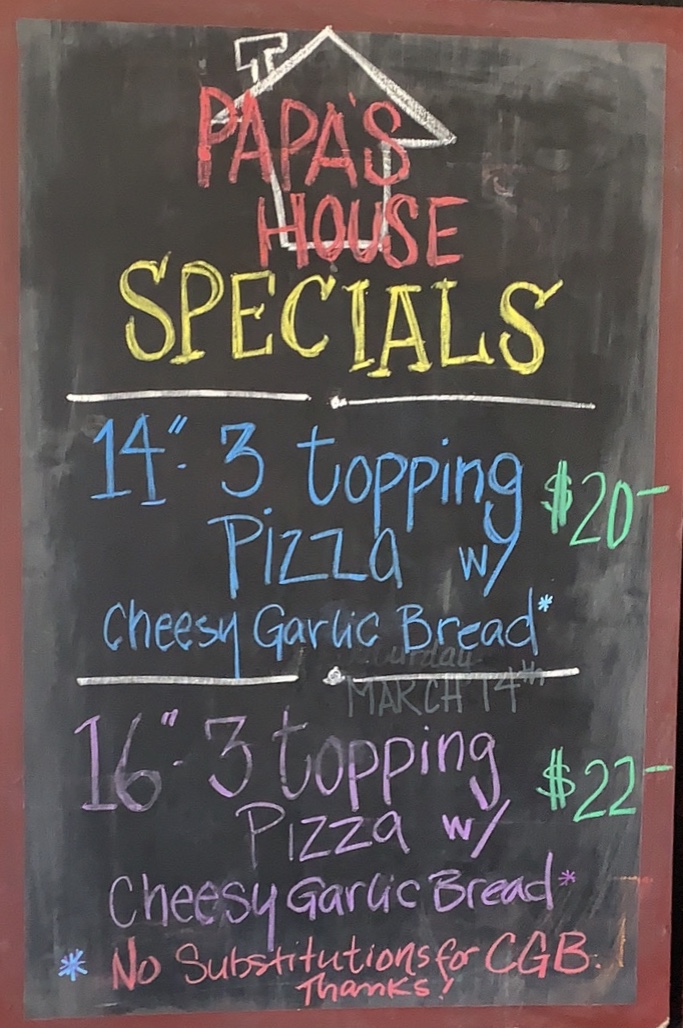 PAPA'S
HOUSE
SPECIALS
14"- 3 topping
Pizza w/
$20-
Cheesy Garlic Bread*
Saturday
MARCH 14th
16"- 3 topping
Pizza w/
$22-
Cheesy Garlic Bread*
* No Substitutions for CGB.
Thanks!